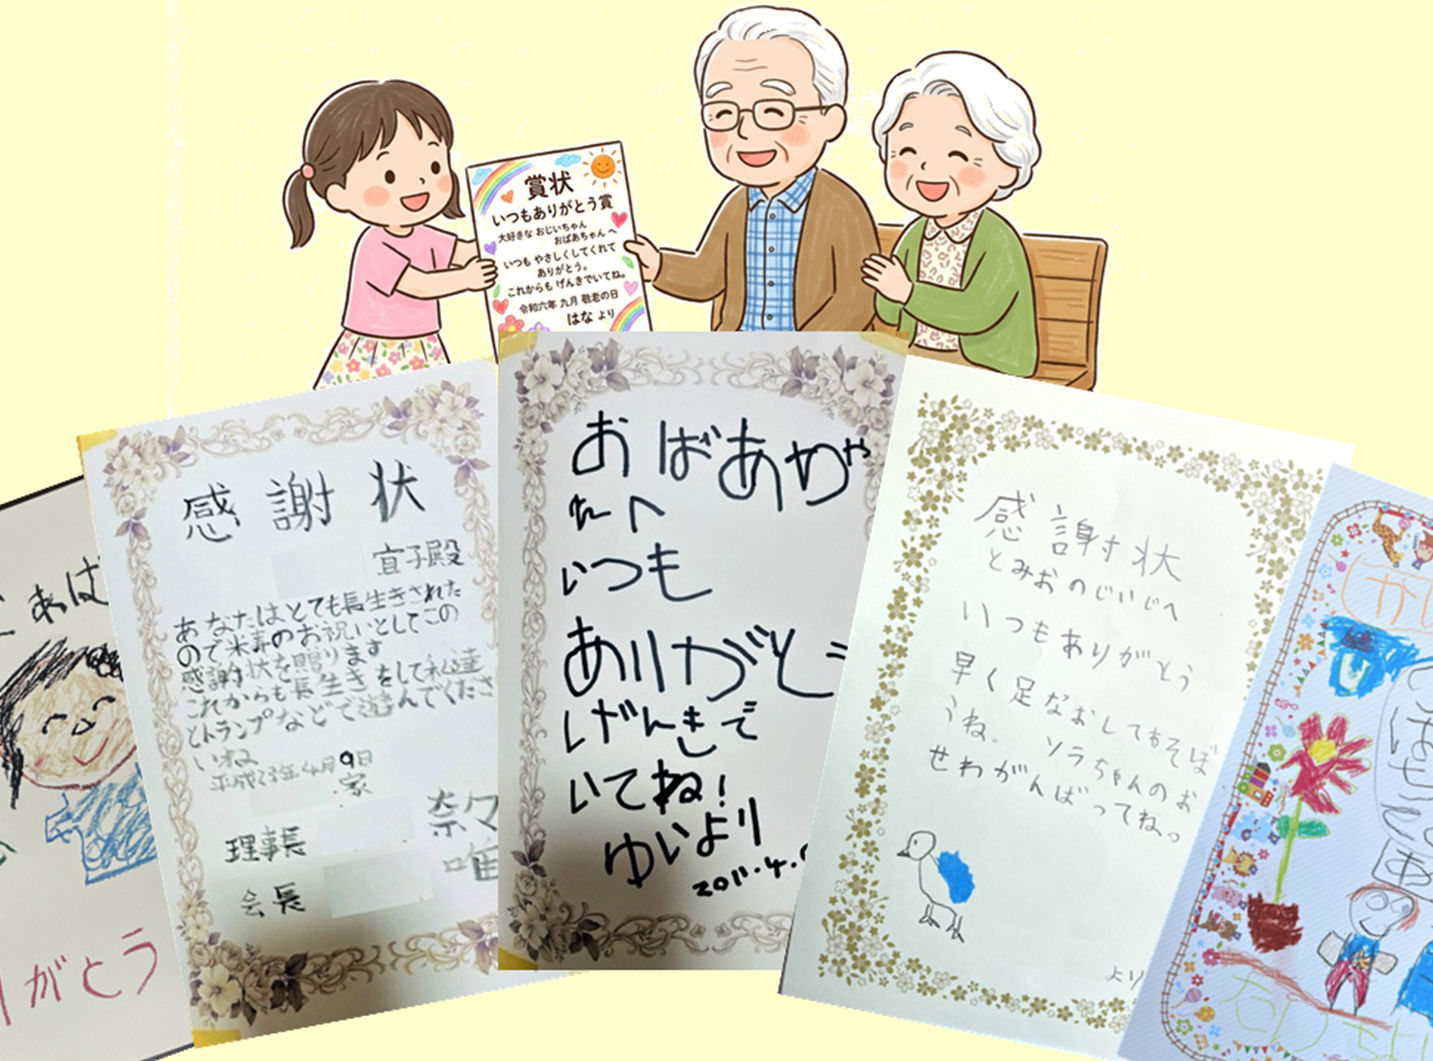 賞状
いつもありがとう賞
大好きな おじいちゃん
おばあちゃん へ
いつも やさしくしてくれて
ありがとう。
これからも げんきでいてね。
令和六年 九月 敬老の日
はな より
あは
がとう
感謝状
宜子殿
あなたはとても長生きされた
ので米寿のお祝いとしてこの
感謝状を贈ります
これからも長生きをして私達
とトランプなどで遊んでくださ
いね
平成23年4月9日
家
理事長
奈々
会長
唯
おばあちゃ
んへ
いつも
ありがとう
げんきで
いてね!
ゆいより
2011.4.
感謝状
とみおのじいじへ
いつもありがとう
早く足なおしてあそぼ
うね。 ソラちゃんのお
せわがんばってねっ
より